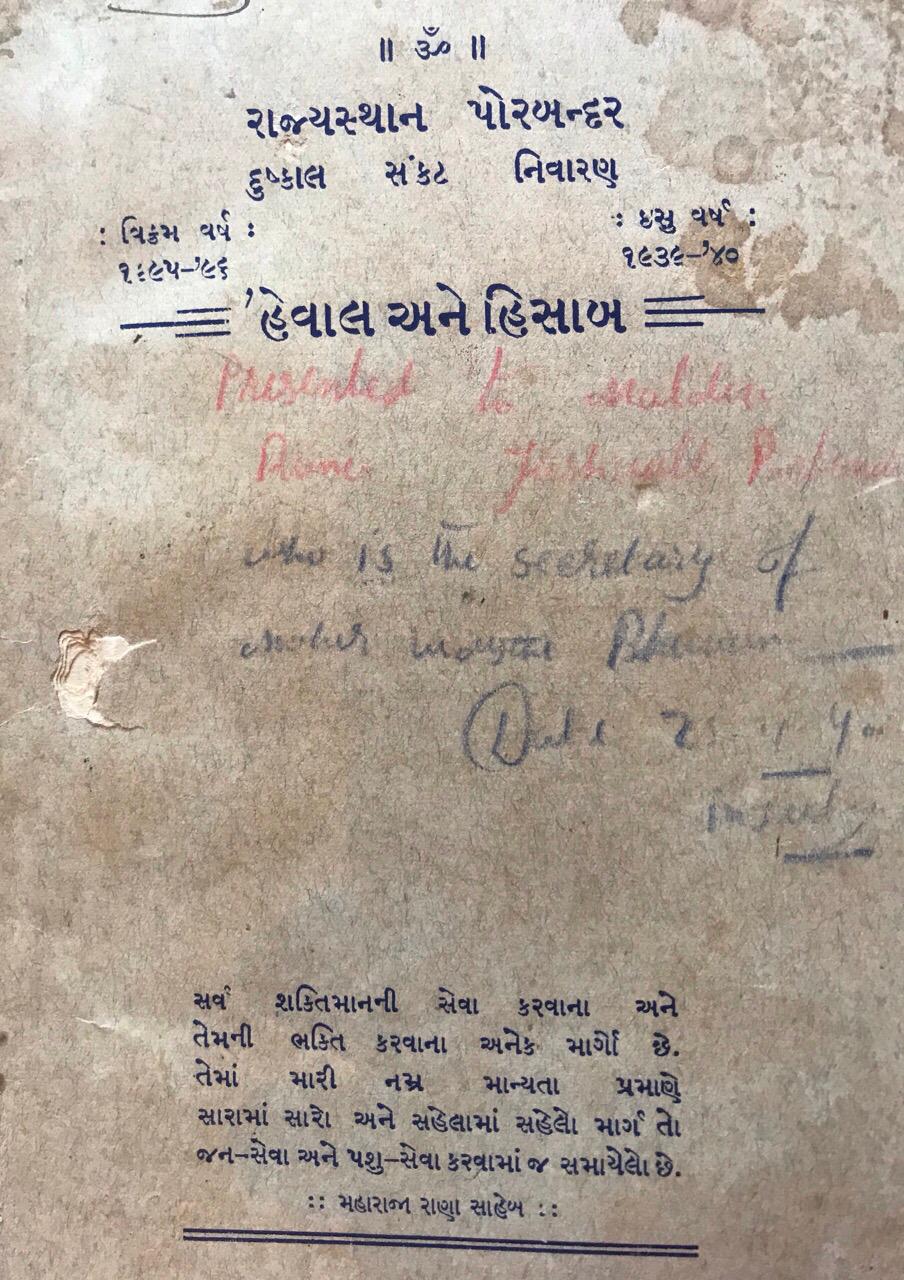 ॥ ૐ ॥
રાજ્યસ્થાન પોરબન્દર
દુષ્કાલ સંકટ નિવારણ
: વિક્રમ વર્ષ : : ઇસુ વર્ષ :
૧૬૯૫-'૯૬ ૧૯૩૯-'૪૦
'હેવાલ અને હિસાબ
Presented to
who is the secretary of
Date
સર્વ શક્તિમાનની સેવા કરવાના અને
તેમની ભક્તિ કરવાના અનેક માર્ગો છે.
તેમાં મારી નમ્ર માન્યતા પ્રમાણે
સારામાં સારો અને સહેલામાં સહેલો માર્ગ તો
જન-સેવા અને પશુ-સેવા કરવામાં જ સમાયેલો છે.
:: મહારાજા રાણા સાહેબ ::